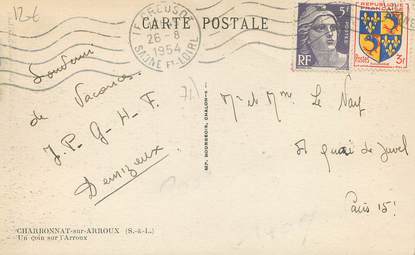 12€
CARTE POSTALE
LE CREUSOT
26-8
1954
SAÔNE ET-LOIRE
5F
POSTES
RF
RÉPUBLIQUE FRANÇAISE
Postes
3F
Souvenir
de Vacances
J.P-G-H-F.
Demizeux
71
Mr et Mme Le Nay
quai de Javel
Paris 15!
MP. BOURGEOIS, CHALON-s-
CHARBONNAT-sur-ARROUX (S.-&-L.)
Un coin sur l'Arroux